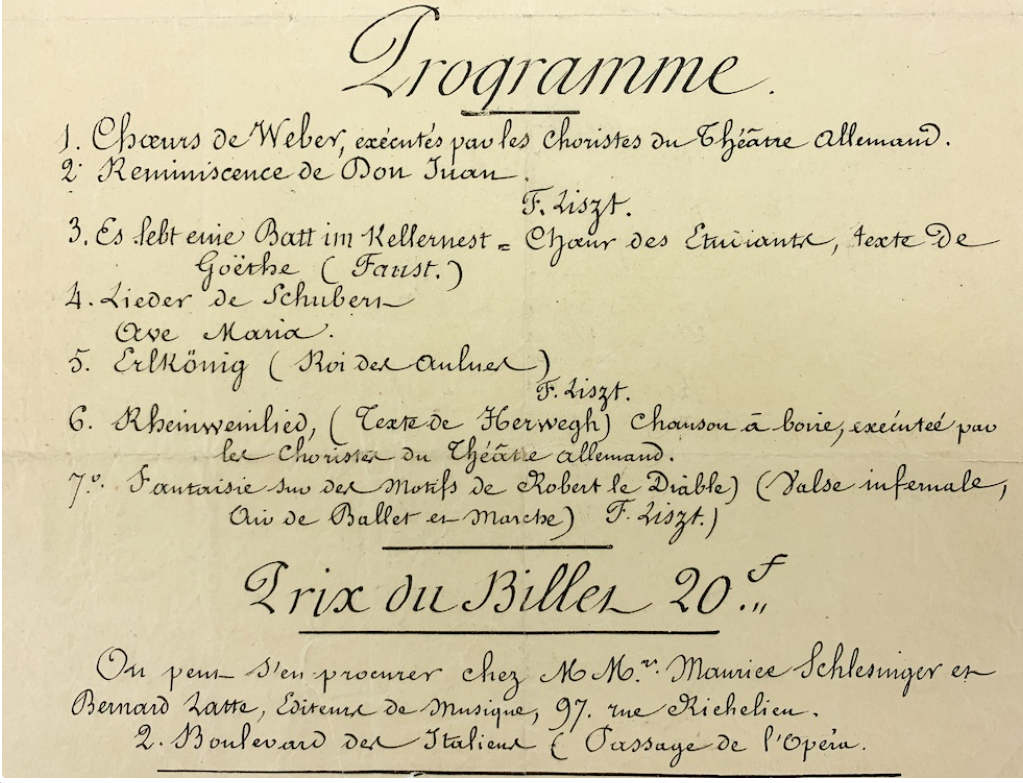 Programme.
1. Chœurs de Weber, exécutés par les Choristes du Théâtre Allemand.
2. Reminiscence de Don Juan.
F. Liszt.
3. Es lebt eine Batt im Kellernest = Chœur des Etudiants, texte de
Goëthe (Faust.)
4. Lieder de Schubert
Ave Maria.
5. Erlkönig (Roi des Aulnes)
F. Liszt.
6. Rheinweinlied, (Texte de Herwegh) Chanson à boire, exécutée par
les Choristes du Théâtre allemand.
7º. Fantaisie sur des Motifs de Robert le Diable) (Valse infernale,
Air de Ballet et Marche) F. Liszt.)
Prix du Billet 20.f"
On peut s'en procurer chez M M.rs. Maurice Schlesinger et
Bernard Latte, Editeurs de Musique, 97. rue Richelieu.
2. Boulevard des Italiens (Passage de l'Opéra.